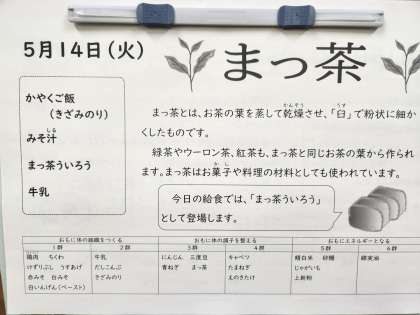 5月14日(火)
まっ茶
かやくご飯
(きざみのり)
みそ汁
まっ茶ういろう
牛乳
まっ茶とは、お茶の葉を蒸して乾燥させ、「臼」で粉状に細か
くしたものです。
緑茶やウーロン茶、紅茶も、まっ茶と同じお茶の葉から作られ
ます。まっ茶はお菓子や料理の材料としても使われています。
今日の給食では、「まっ茶ういろう」
として登場します。
おもに体の組織をつくる おもに体の調子を整える おもにエネルギーとなる
1群 2群 3群 4群 5群 6群
鶏肉 ちくわ 牛乳 にんじん 三度豆 キャベツ 精白米 砂糖 綿実油
けずりぶし うすあげ だしこんぶ 青ねぎ まっ茶 たまねぎ じゃがいも
赤みそ 白みそ きざみのり えのきたけ 上新粉
白いんげん(ペースト)